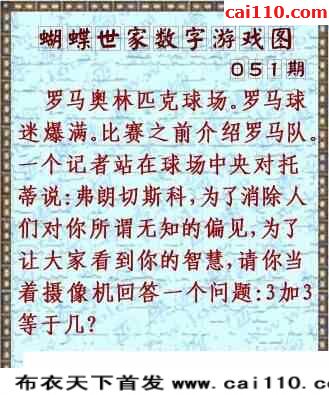 cai110.com
蝴蝶世家数字游戏图
051期
罗马奥林匹克球场。罗马球
迷爆满。比赛之前介绍罗马队。
一个记者站在球场中央对托
蒂说:弗朗切斯科,为了消除人
们对你所谓无知的偏见,为了
让大家看到你的智慧,请你当
着摄像机回答一个问题:3加3
等于几?
布衣天下首发 www.cai110.c